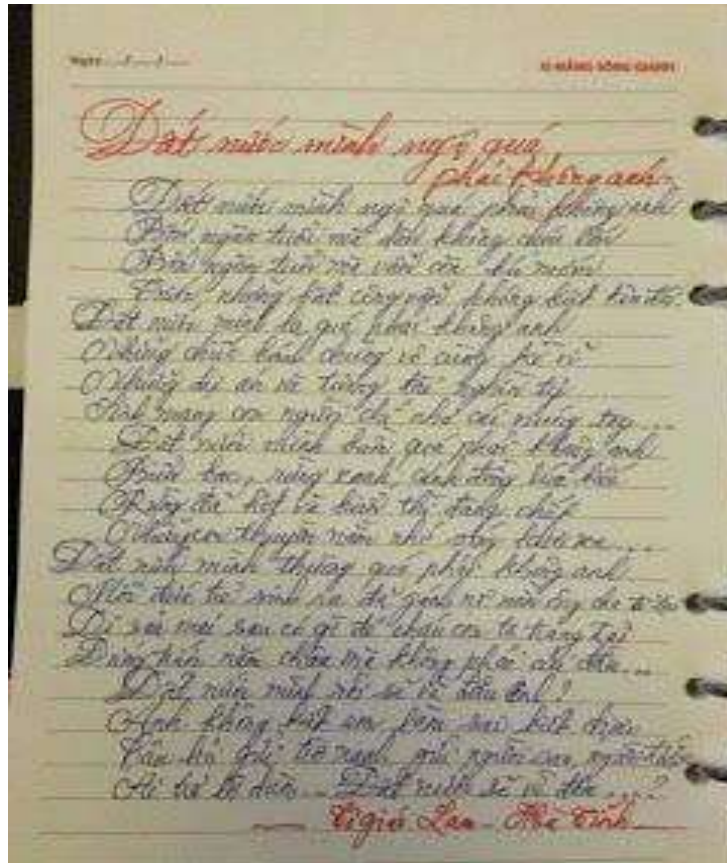 Ngày..../..../....
XI MĂNG SÔNG GIANH
Đất nước mình ngộ quá
phải không anh
Đất nước mình ngộ quá phải không anh
Bốn ngàn tuổi mà dân không chịu lớn
Bốn ngàn tuổi mà vẫn còn bú mớm
Trước những bất công vẫn không biết kêu đòi.
Đất nước mình lạ quá phải không anh
Những chiếc bánh chưng vô cùng kì vĩ
Những dự án và tượng đài nghìn tỷ
Sinh mạng con người chỉ như cái móng tay...
Đất nước mình buồn quá phải không anh
Biển bạc, rừng xanh, cánh đồng lúa biếc
Rừng đã hết và biển thì đang chết
Những con thuyền nằm nhớ sóng khơi xa...
Đất nước mình thương quá phải không anh
Mỗi đứa trẻ sinh ra đã gánh nợ nần ông cha để lại
Di sản mai sau có gì để cháu con ta trang trải
Đứng trước năm châu mà không phải cúi đầu...
Đất nước mình rồi sẽ về đâu anh?
Anh không biết em làm sao biết được
Câu hỏi gửi trời xanh, gửi người sau, người trước
Ai trả lời dùm... Đất nước sẽ về đâu....?
Cô giáo Lam - Hà Tĩnh